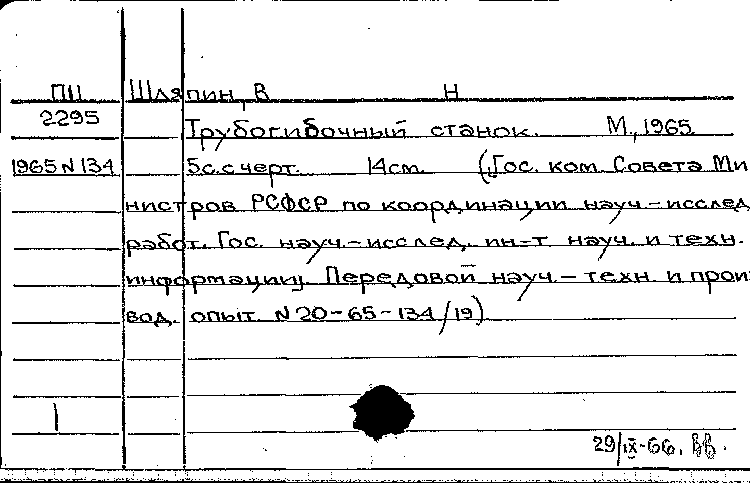 ПП Шляпин, В Н
2295 Трубогибочный станок. М., 1965
1965 N 134 5с. с черт. 14см. (Гос. ком. Совета Ми
нистров РСФСР по координации науч.-исслед.
работ. Гос. науч.-исслед. ин-т науч. и техн.
информации. Передовой науч.-техн. и произ
вод. опыт. N 20-65-134/19)
29/IX-66. ВВ.